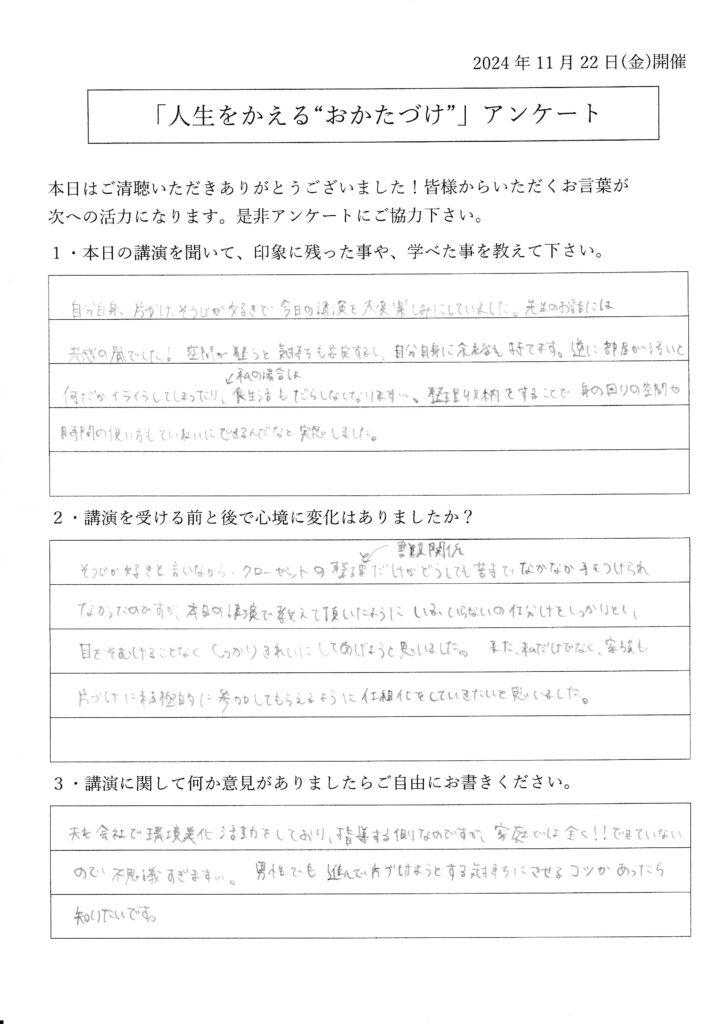 2024年11月22日(金)開催
「人生をかえる“おかたづけ”」アンケート
本日はご清聴いただきありがとうございました！皆様からいただくお言葉が
次への活力になります。是非アンケートにご協力下さい。
１・本日の講演を聞いて、印象に残った事や、学べた事を教えて下さい。
自分自身、片かけ、そうじが好きで今日の講演を大変楽しみにしていました。先生のお話には
共感の嵐でした！空間が整うと気持ちも安定するし、自分自身に余裕も持てます。逆に部屋が汚いと
私の場合は
何だかイライラしてしまったり、食生活もだらしなくなります…。整理収納をすることで身の回りの空間や
時間の使い方もていねいにできるんだなと実感しました。
２・講演を受ける前と後で心境に変化はありましたか？
書類関係
そうじが好きと言いながら、クローゼットの整理だけがどうしても苦手でなかなか手をつけられ
なかったのですが、本日の講演で教えて頂いたようにいる、いらないの仕分けをしっかりとし、
目をそむけることなくしっかりきれいにしてあげようと思いました。また、私だけでなく、家族も
片づけに積極的に参加してもらえるように仕組化をしていきたいと思いました。
３・講演に関して何か意見がありましたらご自由にお書きください。
夫も会社で環境美化活動をしており、指導する側なのですが、家庭では全く!!できていない
ので不思議すぎます…。男性でも進んで片づけようとする気持ちにさせるコツがあったら
知りたいです。